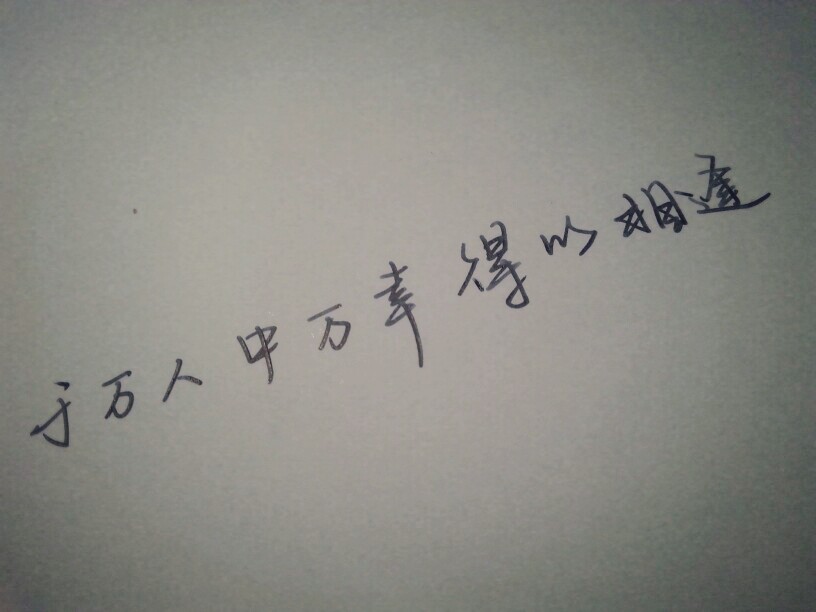 于万人中万幸得以相逢